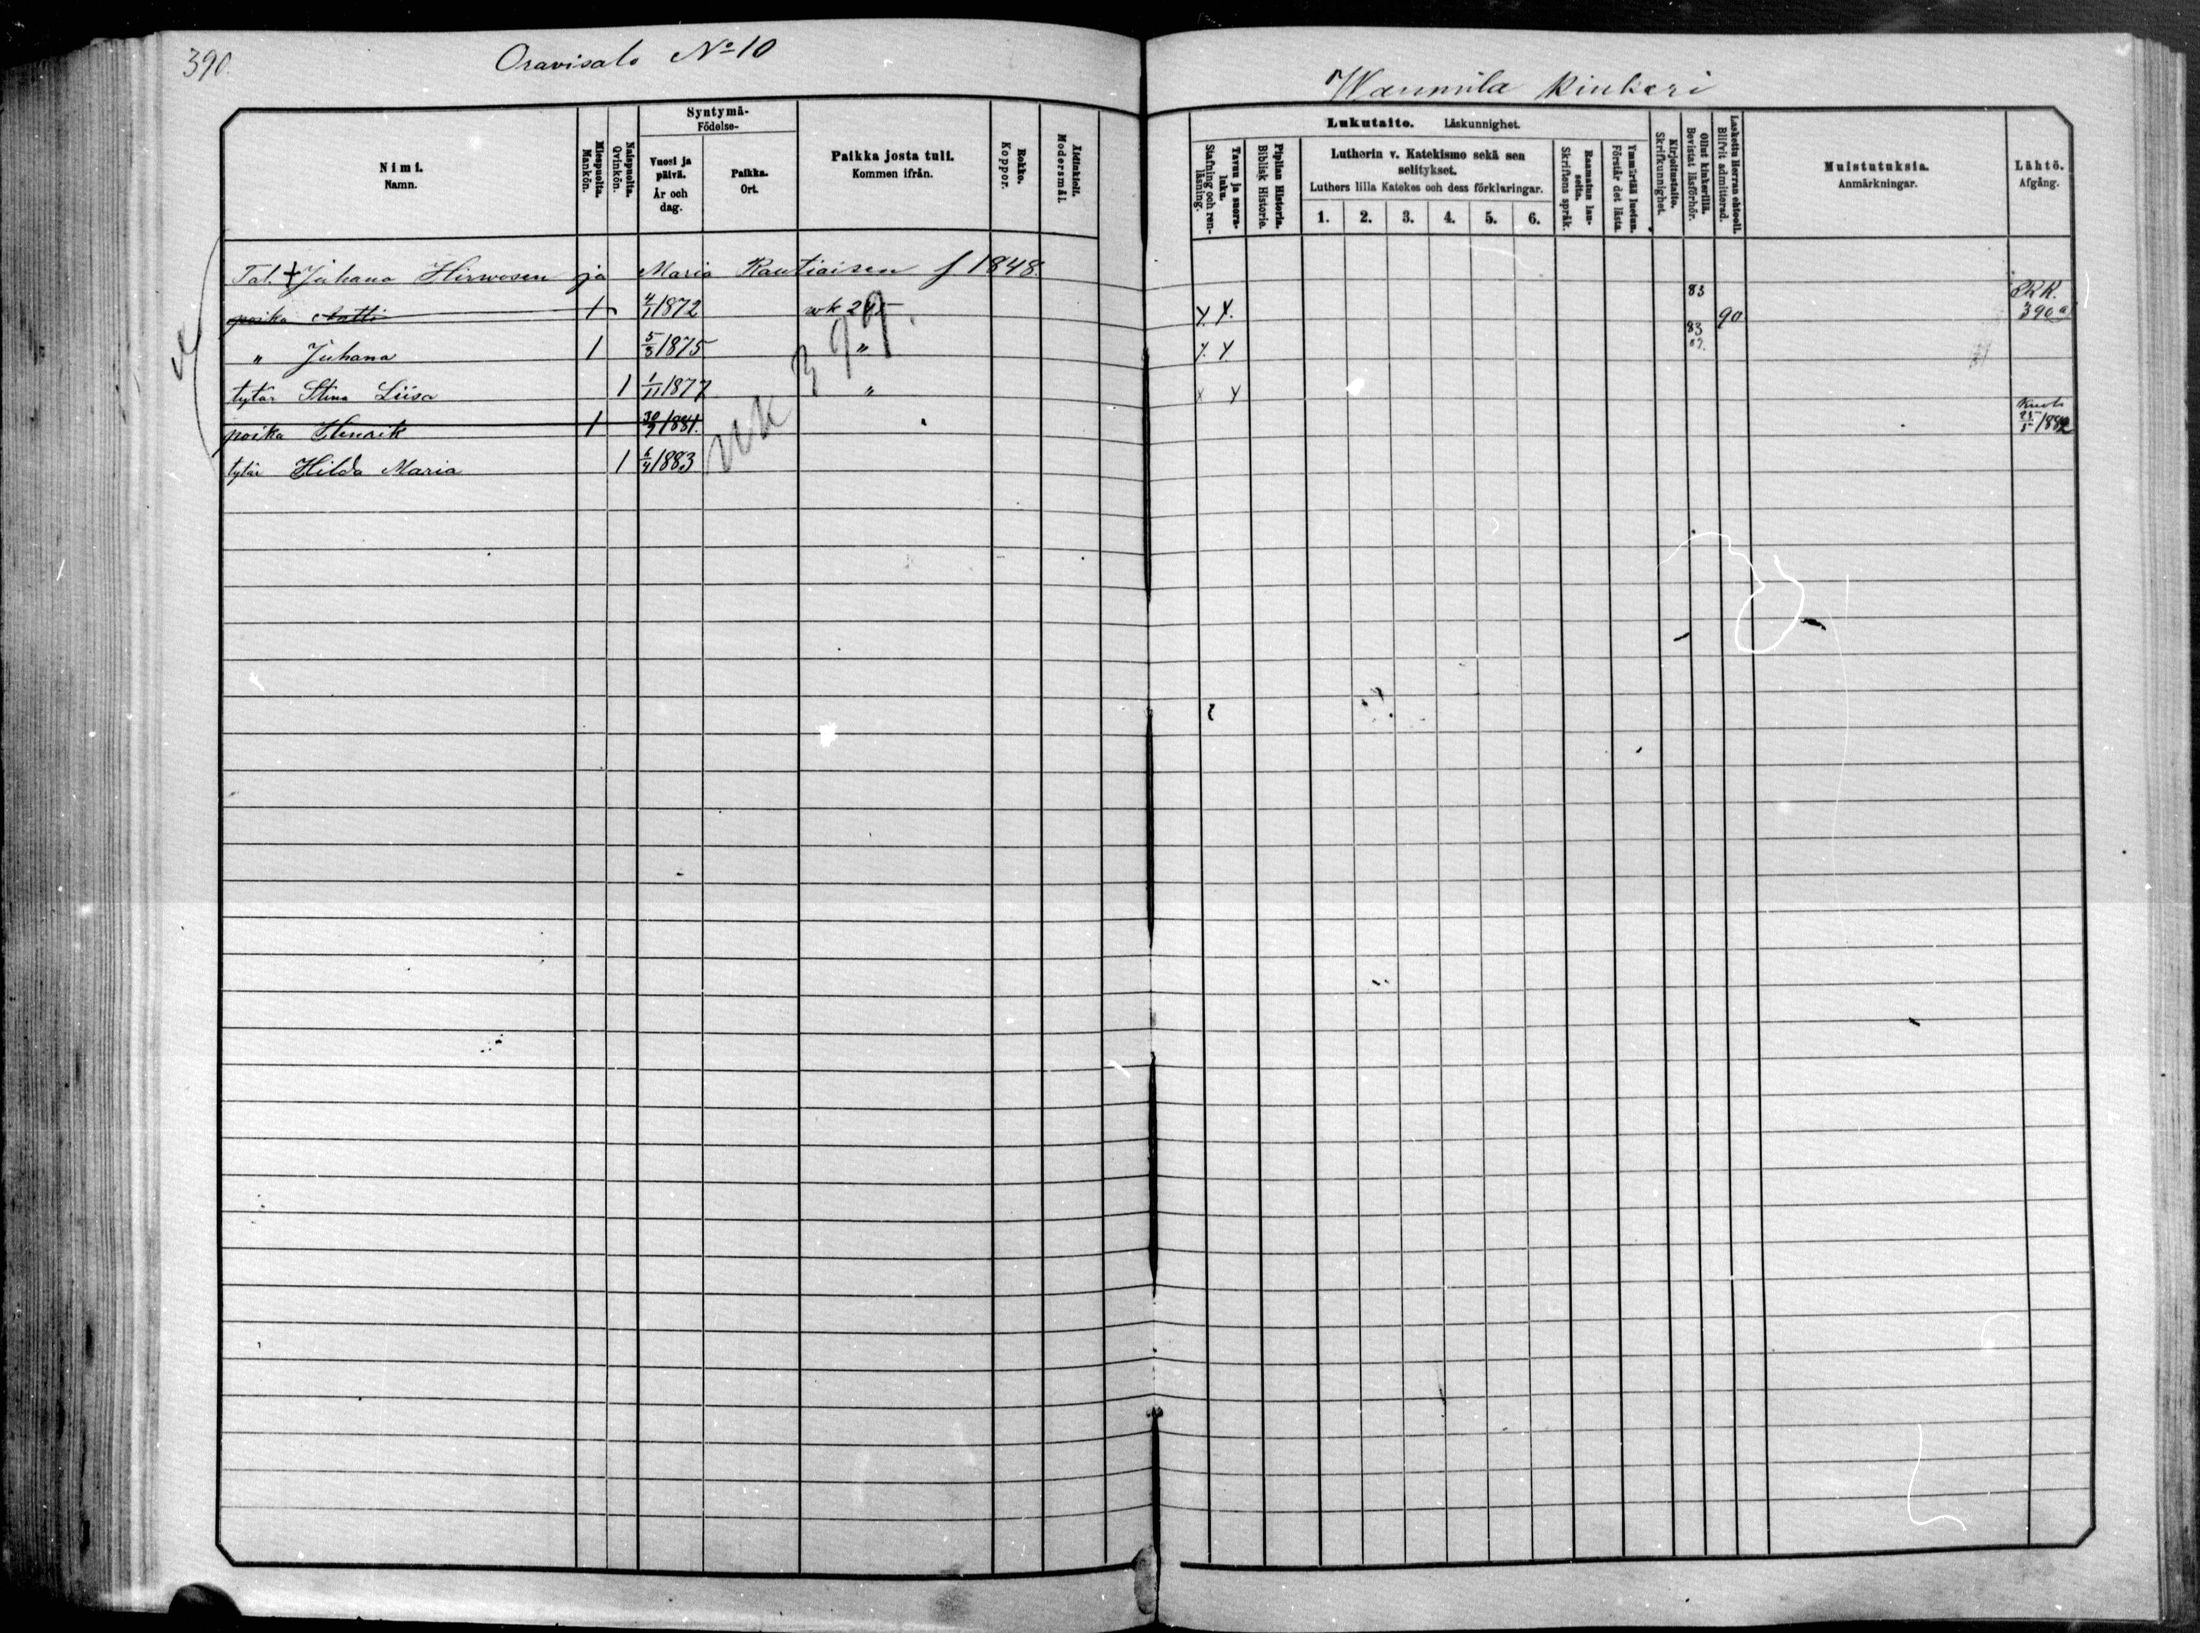 390.
Oravisalo No 10
Nimi.
Namn.
Miespuolta.
Mankön.
Naispuolta.
Qvinkön.
Syntymä-
Födelse-
Vuosi ja
päivä.
År och
dag.
Paikka.
Ort.
Paikka josta tuli.
Kommen ifrån.
Rokko.
Koppor.
Äidinkieli.
Modersmål.
Tal. + Juhana Hirvosen ja Maria Rautiaisen f 1848.
poika Matti 1 4/1 1872 wk 245
" Juhana 1 5/3 1875 "
tytär Stina Liisa 1 1/11 1877 "
poika Henrik 1 30/9 1881.
tytär Hilda Maria 1 6/4 1883
rk 399.
Kinkeri
Lukutaito. Läskunnighet.
Tavuu ja suora-
luku.
Stafning och ren-
läsning.
Piplian Historia.
Biblisk Historie.
Lutherin v. Katekismo sekä sen
selitykset.
Luthers lilla Katekes och dess förklaringar.
1. 2. 3. 4. 5. 6.
Raamatun lau-
seita.
Skriftens språk.
Ymmärtää lueiun.
Förstår det lästa.
Kirjoitustaito.
Skrifkunnighet.
Ollut kinkerillä.
Bevistat läsförhör.
Laskettu Herran ehtoolI.
Blifvit admitterad.
Muistutuksia.
Anmärkningar.
Lähtö.
Afgång.
Y. Y. 83 90 RK. 390 a)
Y. Y 83
x Y
25/5 1882